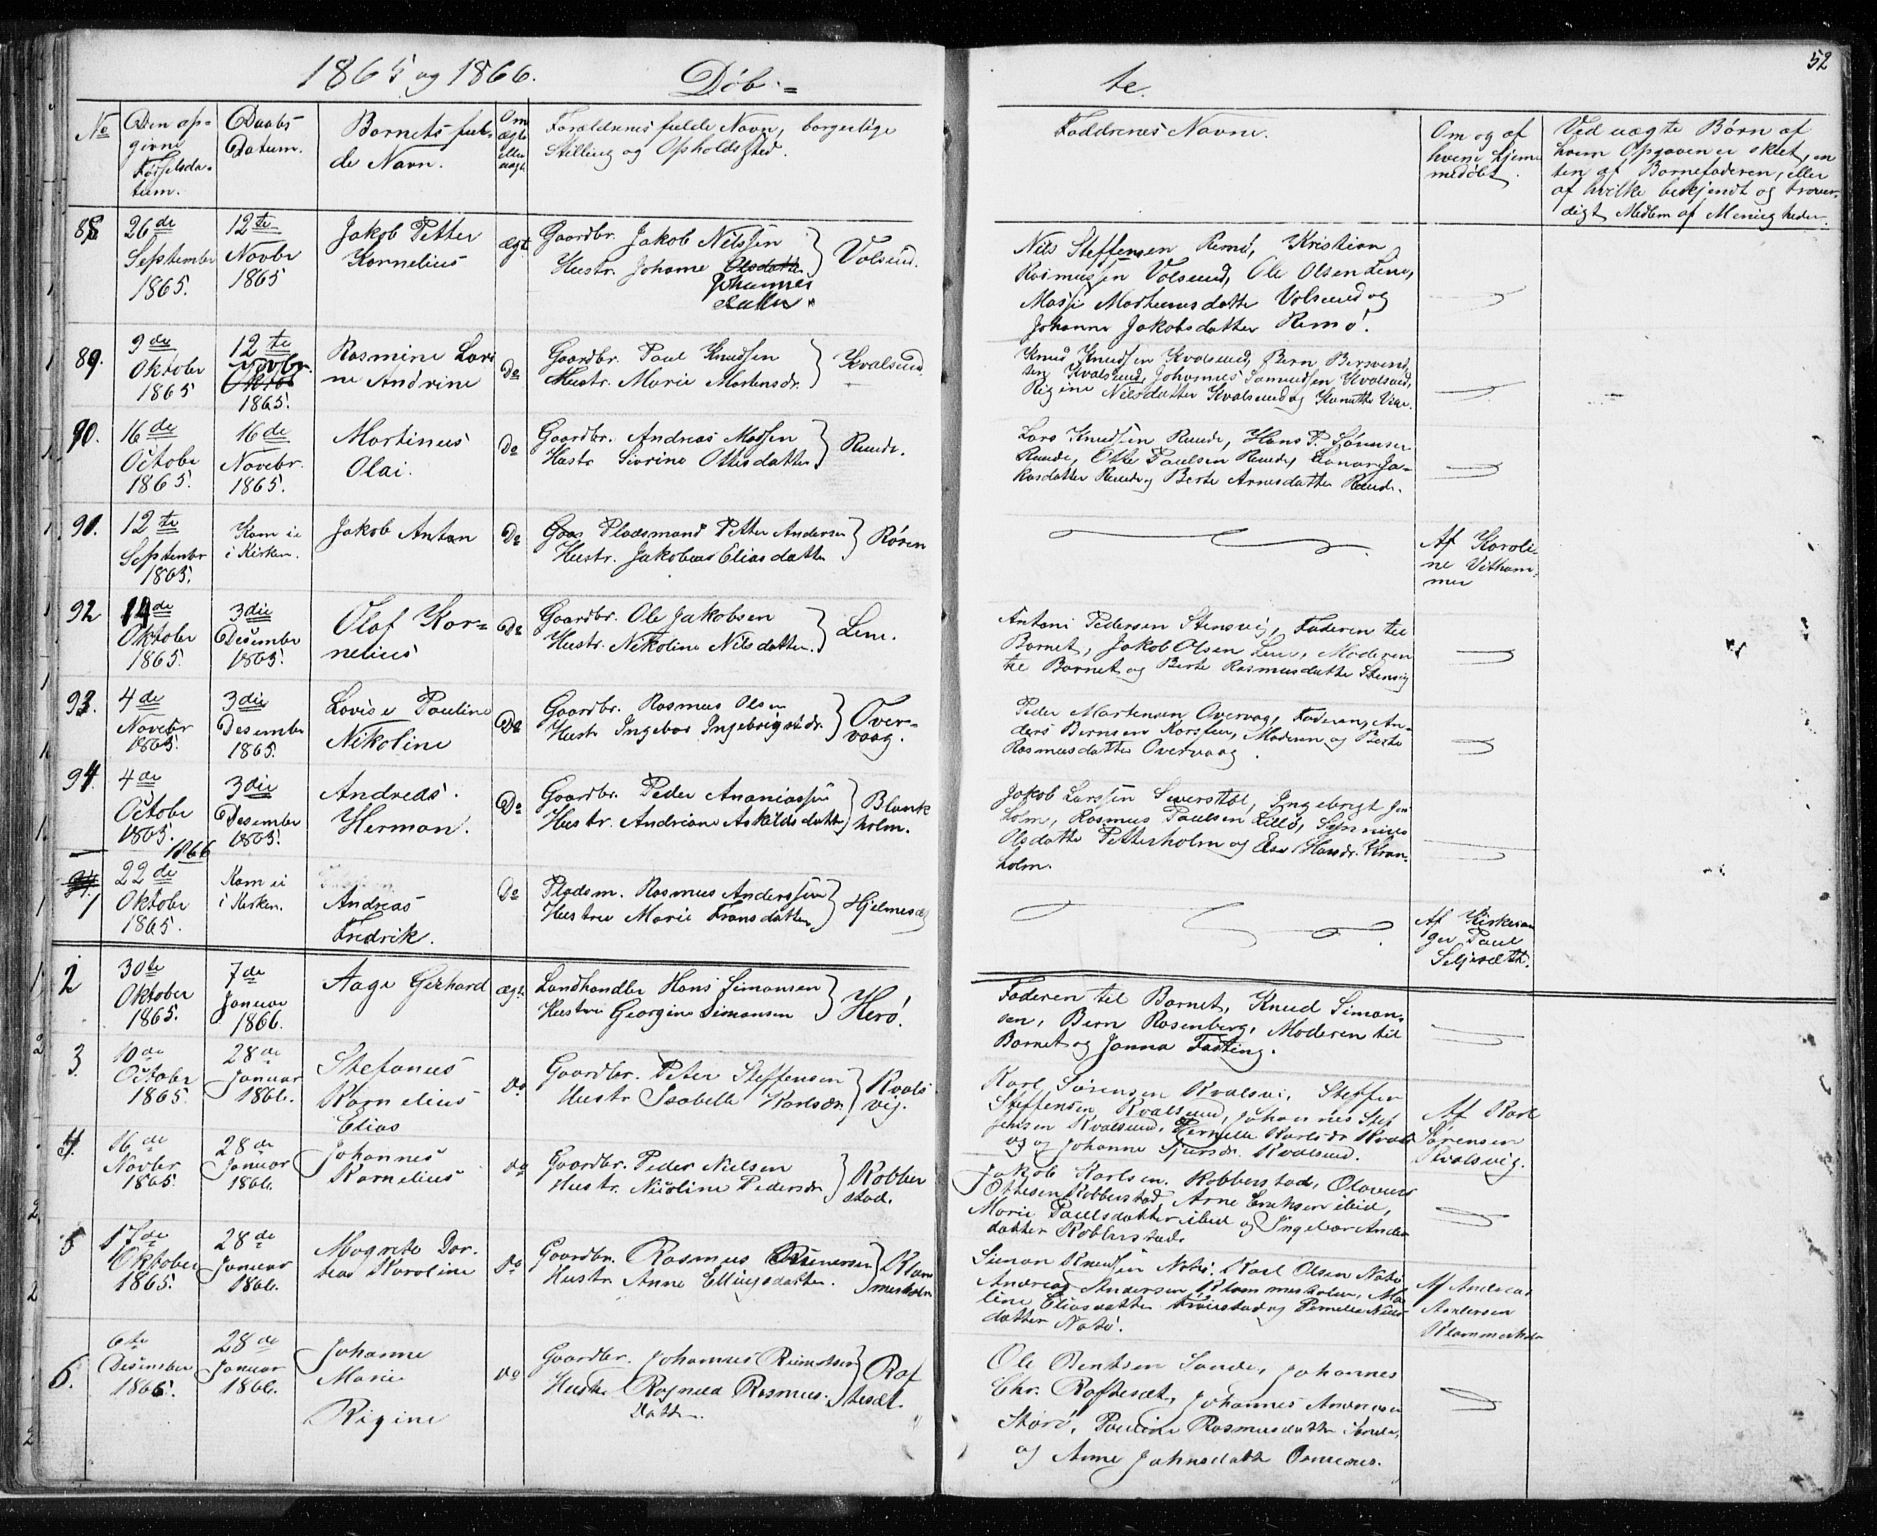 1865 og 1866. Døb-
te.
52
No
Den op-
givne
Fødselsda-
tum.
Daabs
Datum.
Barnets ful-
de Navn.
Om
ægte
eller
uægte
Forældrenes fulde Navn, borgerlige
Stilling og Opholdssted.
Faddrenes Navne.
Om og af
hvem hjem-
medøbt.
Ved uægte Børn af
hvem Opgaven er skeet, en
ten af Barnefaderen, eller
af hvilke bekjendt og trover-
digt Medlem af Menigheden.
88
26de
September
1865.
12te
Novbr
1865
Jakob Petter
Kornelius
ægt.
Gaardbr. Jakob Nilssen
Hustr. Johanne Olsdatter
Johannes
datter
Volsund.
Nils Steffensen Remø, Kristian
Rasmussen Volsund, Ole Olsen Line,
Massi Mortensdatter Volsund og
Johanne Jakobsdatter Remø.
89.
9de
Oktober
1865
12te
Novbr.
Oktob
1865.
Rasmine Lovi
ne Andrine
Do
Gaardbr. Paul Knudsen
Hustr. Marie Mortensdr.
Kvalsund
Knud Knudsen Kvalsund, Bern Berntsend
sen Kvalsund, Johannes Samundsen Kvalsund,
Rigine Nilsdatter Kvalsund og
90.
16de
October
1865.
16de
Novebr.
1865.
Martinus
Olai.
Do
Gaardbr. Andreas Madsen
Hustr Sivrine Ottesdatter
Runde.
Lars Knudsen Runde, Hans P. Sømmer
Runde, Otte Paulsen Runde, Ja-
kobsdatter Runde og Berte Arnesdatter Runde.
90.
12te
September
1865.
Kom ei
i Kirken.
Jakob Anton
Do
Gaar Pladsmand Petter Andersen
Hustr. Jakobea Eliasdatter
Røren
Af Karoli-
ne Vitham-
mer
92
14de
Oktober
1865.
3die
Desember
1865.
Olaf Kor-
nelius
Do
Gaardbr. Ole Jakobsen
Hustr. Nikoline Nilsdatter.
Line.
Antoni Pedersen Stensvig, Faderen til
Barnet, Jakob Olsen Line, Moderen
til Barnet og Berte Rasmusdatter Stensvig
93.
4de
Novebr
1865.
3die
Desember
1865.
Lovise Pauline
Nikoline
Do
Gaardbr. Rasmus Olsen
Hustr Ingebor Ingebrigtsdr.
Over-
vaag.
Peder Martensen Overvag, Faderen, An-
ders Bernsen Korshen, Moderen og Berte
Rasmusdatter Overvaag
94.
4de
October
1865.
3die
Desember
1865.
Andreas
Herman.
Do
Gaardbr. Peder Ananiassen
Hustr. Andriane Askildsdatter
Blank
holm.
Jakob Larssen Sæverstøl, Ingebrigt
holm, Rasmus Paulsen Lillø, Synnøve
Olsdatter Petterholm og Else Hansdr. Kvan-
holm.
1866
94
1
22de
Oktober
1865.
Kom ei
i Kirken.
Andreas
Fredrik.
Do
Pladsm. Rasmus Anderssen
Hustru Marie Fransdatter
Hjelmesæt
Af Kirkesan
ger Paul
Seljesæth.
2
30te
Oktober
1865.
7de
Januar
1866.
Aage Gerhard
ægt.
Landhandler Hans Simonsen
Hustru Georgine Simonsen
Herø.
Faderen til Barnet, Knud Simon-
sen, Bern Rosenberg, Moderen til
Barnet og Janna Fasting.
3
10de
October
1865
28de
Januar
1866.
Stefanus
Kornelius
Elias
do
Gaardbr. Peter Steffensen
Hustr. Isabelle Karlsdr.
Kvals
vig.
Karl Sørensen Kvalsvi, Steffen
Steffensen Kvalsund, Johannes Stef
fensen Kvalsund, Pernelle Karlsdr Kvals
vig og Johanne Sjursdr. Kvalsund.
Af Karl
Sørensen
Kvalsvig.
4.
16de
Novbr
1865
28de
Januar
1866.
Johannes
Kornelius
do
Gaardbr. Peder Nielsen
Hustr. Nicoline Pedersdr.
Kobber
stad.
Jakob Karlsen. Kobberstad, Olavus
Ottesen Kobberstad, Arne Eriksen ibid,
Marie Paulsdatter ibid og Ingebor Ander
datter Kobberstad.
5
17de
Oktober
1865.
28de
Januar
1866.
Magrete Dor-
thea Karoline
do
Gaardbr. Rasmus
Hustr Anne Ellingsdatter.
Klam
mesholm
Simon Knudsen Notø. Karl Olsen Notø
Andreas Andersen Klammesholm, Ma-
line Eliasdatter og Pernelle Niels
datter Notø.
Af Andreas
Andersen
Klammesholm
6.
6te
Desember
1865.
28de
Januar
1866.
Johanne
Marie
Rigine
do
Gaardbr. Johannes
Hustr Ragnild Rasmus.
Datter.
Raf
tesæt.
Ole Bentsen Sande, Johannes
Chr. Raftesæt, Johannes Andreasen
Storø, Pauline Rasmusdatter Sande,
og Anne Johnsdatter